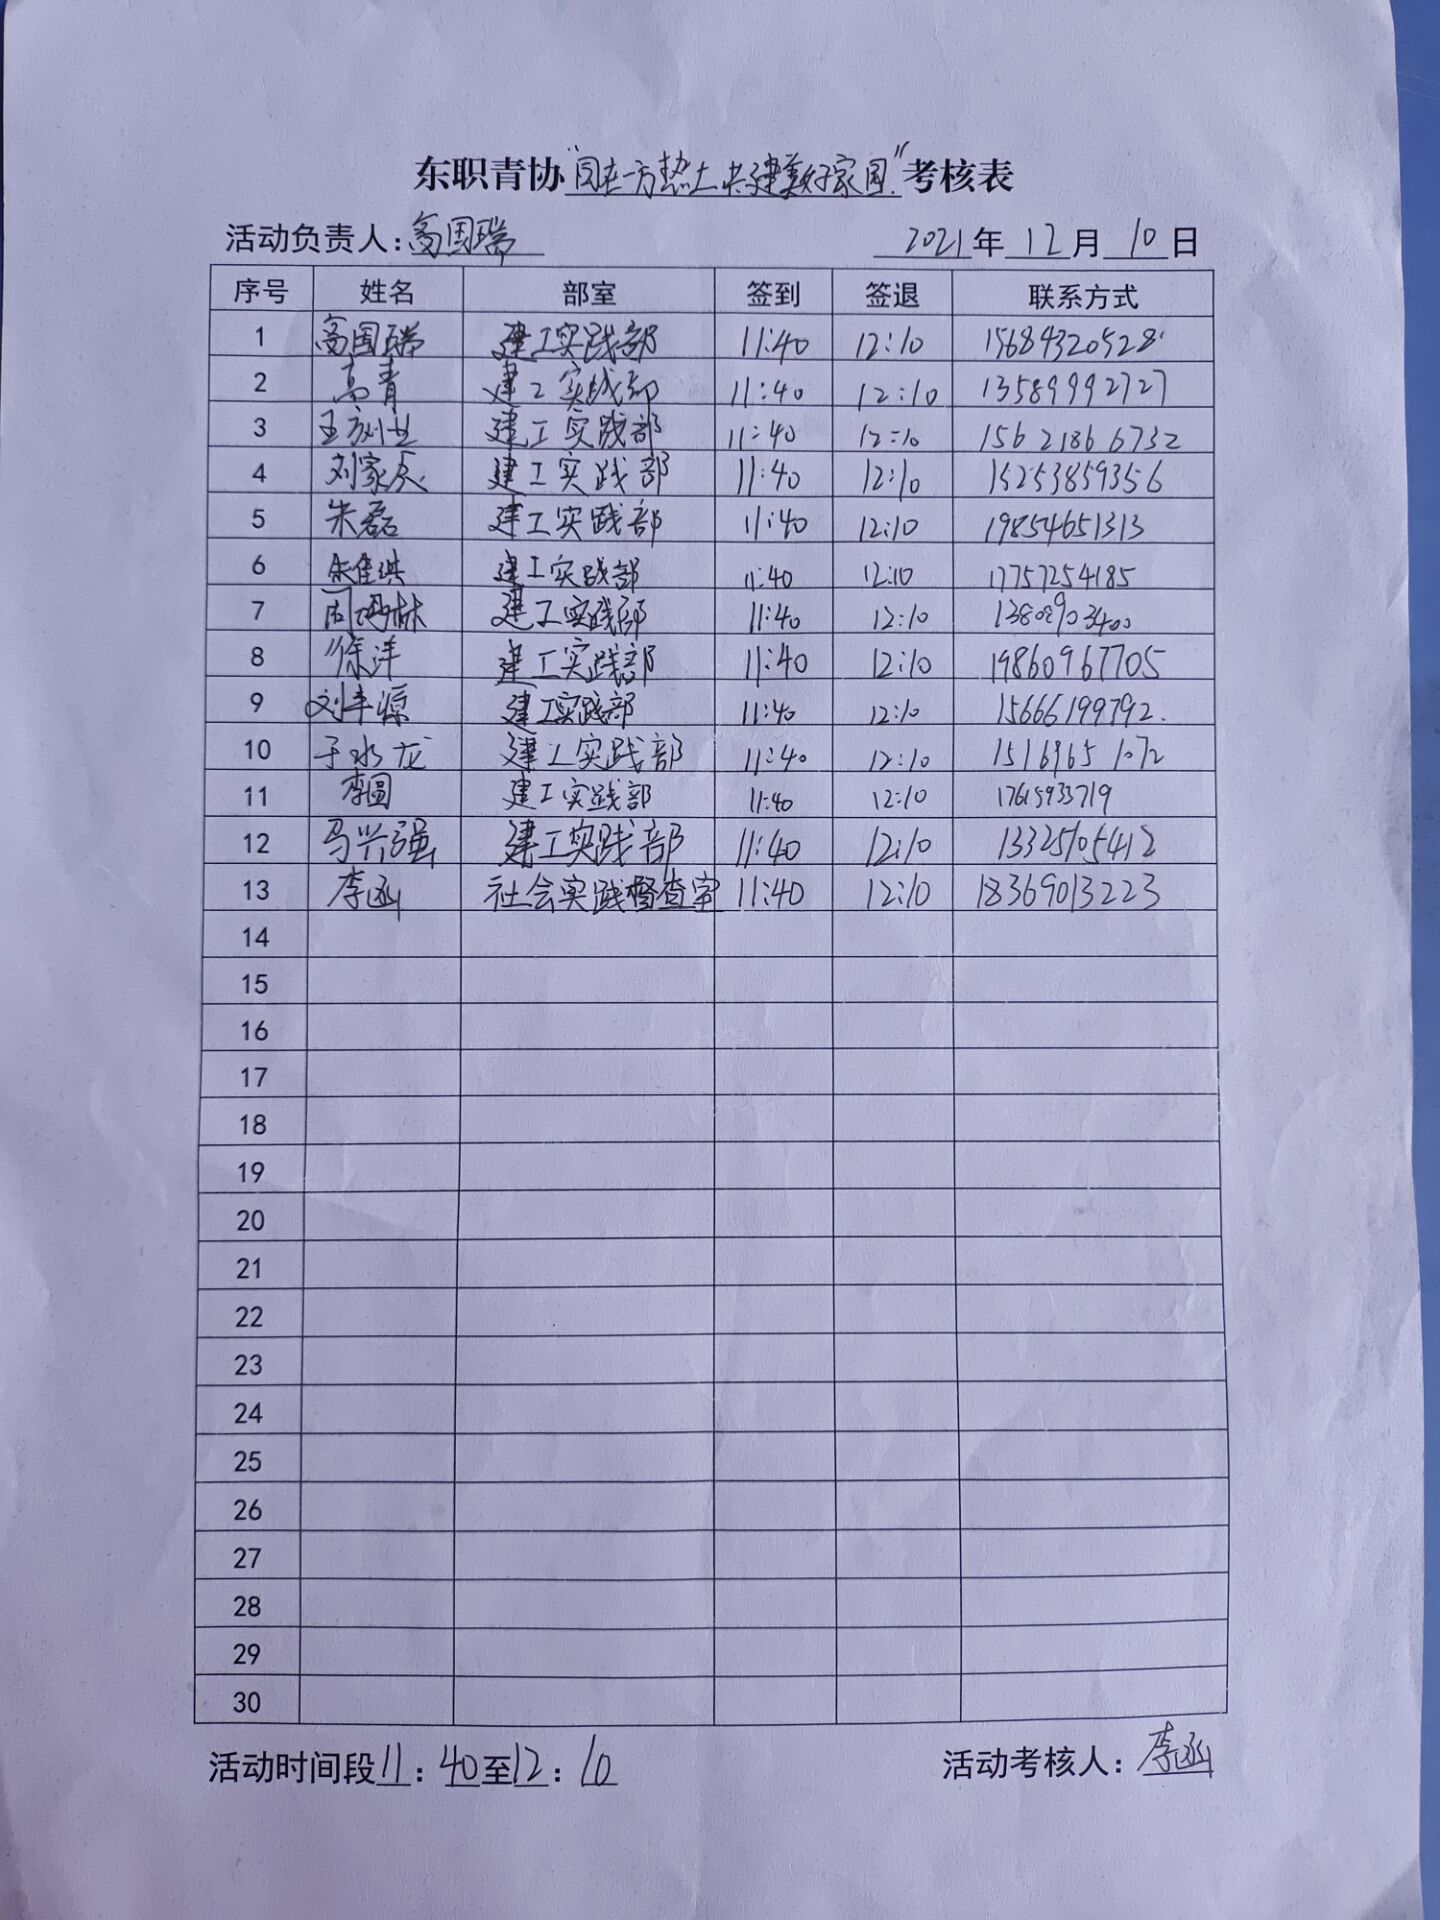 东职青协"同在一方热土共建美好家园"考核表
活动负责人:高国瑞 2021年12月10日
序号 姓名 部室 签到 签退 联系方式
1 高国瑞 建工实践部 11:40 12:10 15684320528
2 高青 建工实践部 11:40 12:10 13589992727
3 建工实践部 11:40 12:10 15621866732
4 刘家辰 建工实践部 11:40 12:10 15253859356
5 朱磊 建工实践部 11:40 12:10 19854651313
6 建工实践部 11:40 12:10 17757254185
7 建工实践部 11:40 12:10 13808903400
8 徐洋 建工实践部 11:40 12:10 19860967705
9 刘丰源 建工实践部 11:40 12:10 15666199792.
10 于水龙 建工实践部 11:40 12:10 15169651072
11 李圆 建工实践部 11:40 12:10 17615933719
12 马兴强 建工实践部 11:40 12:10 13325105412
13 李函 社会实践督查室 11:40 12:10 18369013223
14
15
16
17
18
19
20
21
22
23
24
25
26
27
28
29
30
活动时间段11:40至12:10 活动考核人:李函